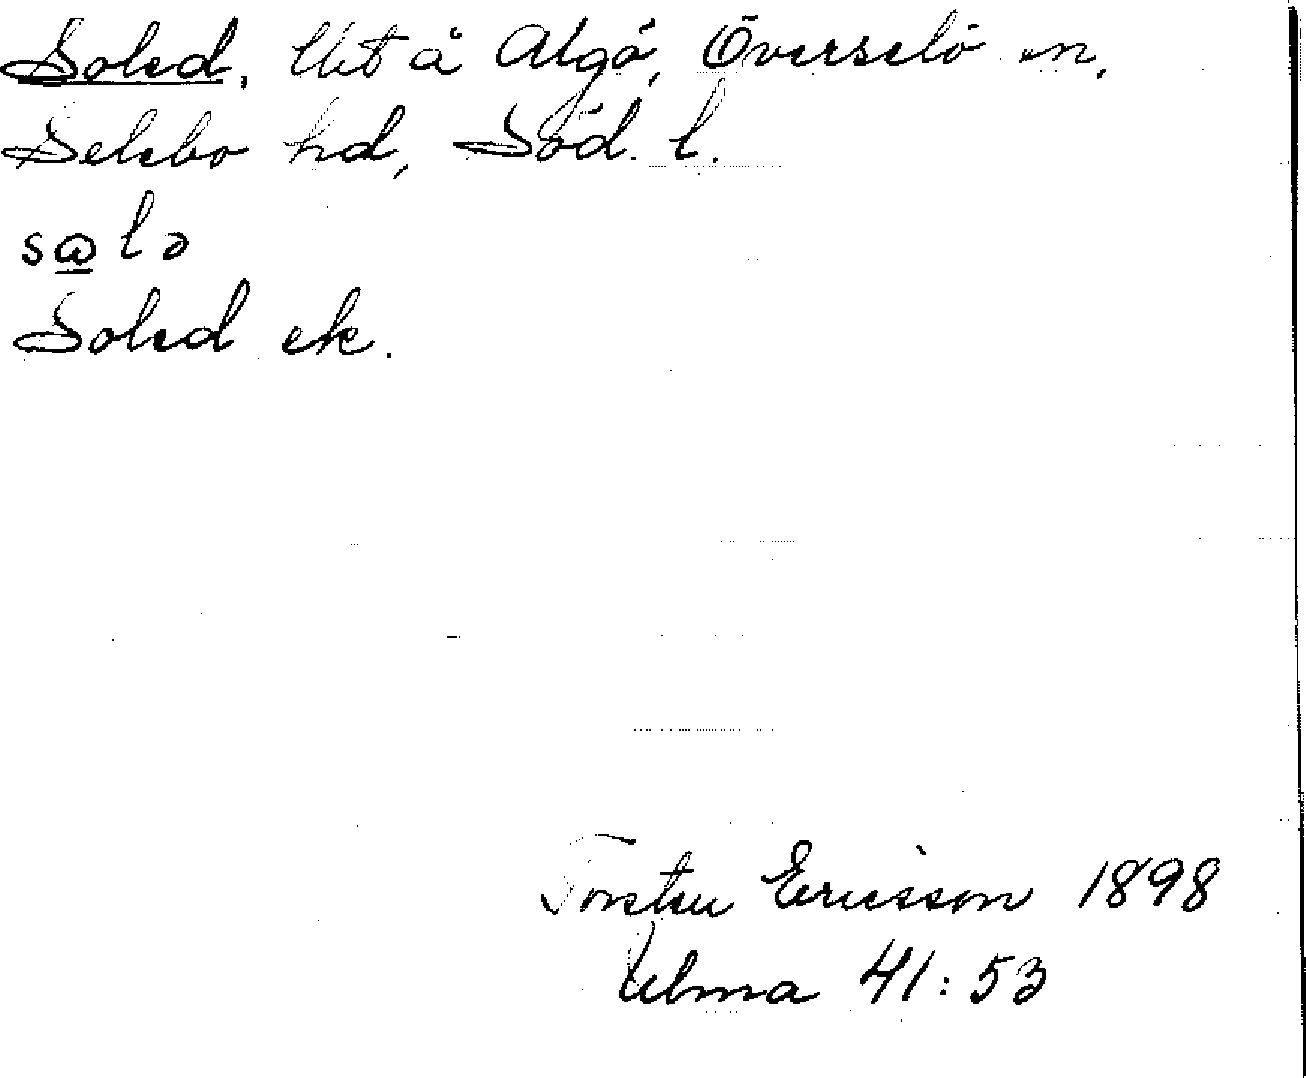 Soled, Utt å Algö, Överselö sn,
Selebo hd, Söd. l.
sɷlə
Soled ek.
Torsten Ericsson 1898
Ulma 41:53